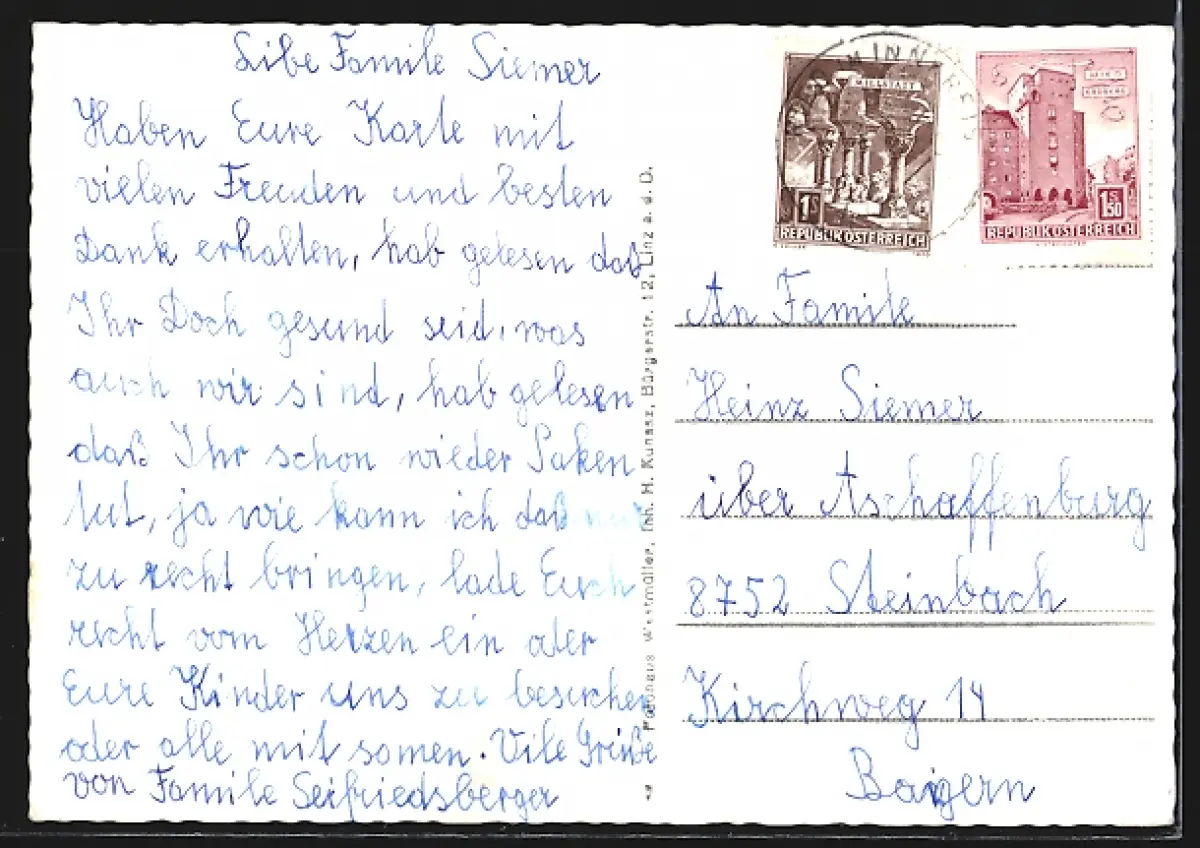 Libe Famile Siemer
Haben Eure Karte mit
vielen Freuden und besten
Dank erhalten, hab gelesen daß
Ihr Doch gesund seid, was
auch wir sind, hab gelesen
daß Ihr schon wieder Paken
tut, ja wie kann ich daß nur
zu recht bringen, lade Euch
recht vom Herzen ein oder
Eure Kinder uns zu besuchen
oder alle mit somen. Vile Grüße
von Familie Seifriedsberger
Fotohaus Westmüller, Inh. H. Kunasz, Bürgerstr. 12, Linz a. d. D.
MILLSTATT
1S
REPUBLIK ÖSTERREICH
1S50
REPUBLIK ÖSTERREICH
An Familie
Heinz Siemer
über Aschaffenburg
8752 Steinbach
Kirchweg 14
Baigern